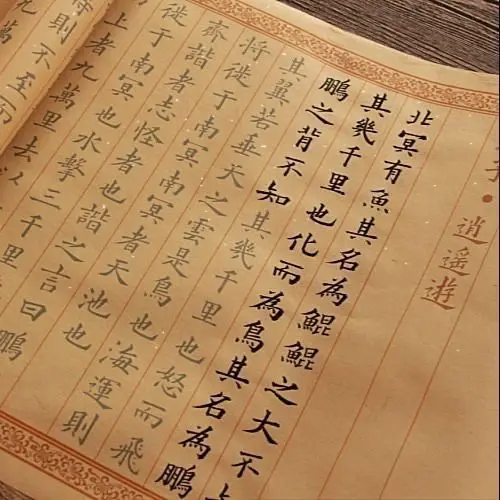 子・逍遙遊
北冥有魚其名為鯤鯤之大不
其幾千里也化而為鳥其名為鵬
鵬之背不知其幾千里也怒而飛
其翼若垂天之雲是鳥也海運則
將徙于南冥南冥者天池也
齊諧者志怪者也諧之言曰鵬
徙于南冥也水擊三千里
上者九萬里去以
則不至而
九萬